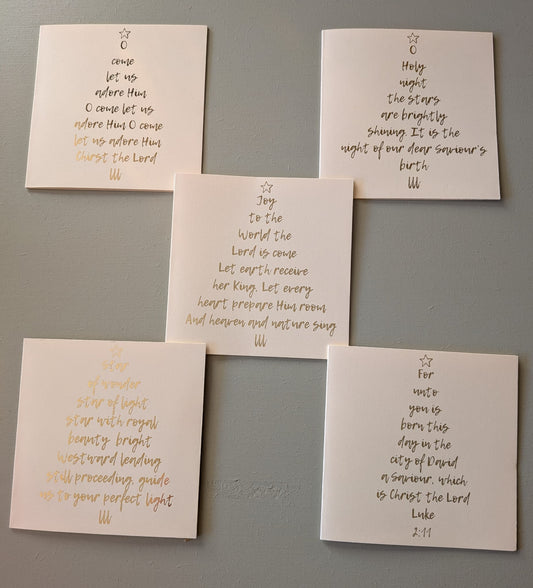 O
come
let us
adore Him
O come let us
adore Him O come
let us adore Him
Chirst the Lord
O
Holy
night
the stars
are brightly
shining. It is the
night of our dear Saviour's
birth
Joy
to the
World the
Lord is come
Let earth receive
her King. Let every
heart prepare Him room
And heaven and nature sing
Star
of wonder
star of light
star with royal
beauty bright
Westward leading
still proceeding, guide
us to your perfect light
For
unto
you is
born this
day in the
city of David
a Saviour, which
is Christ the Lord
Luke
2:11